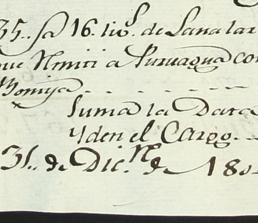 35.. sa 16. lib.s de Lana lar
que Remiti a Puruagua con
Suma la Data
Yden el Cargo
31. de Dic.re de 180